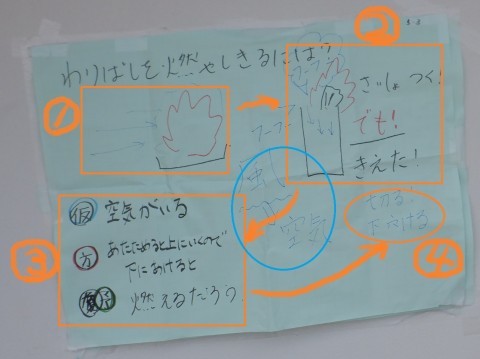 わりばしを燃やしきるには？
①
②
さいしょつく！
でも！
きえた！
フーフー
空気
③
仮 空気がいる
方 あたためると上にいくので
下にあけると
燃えるだろう
切る
下あける
④